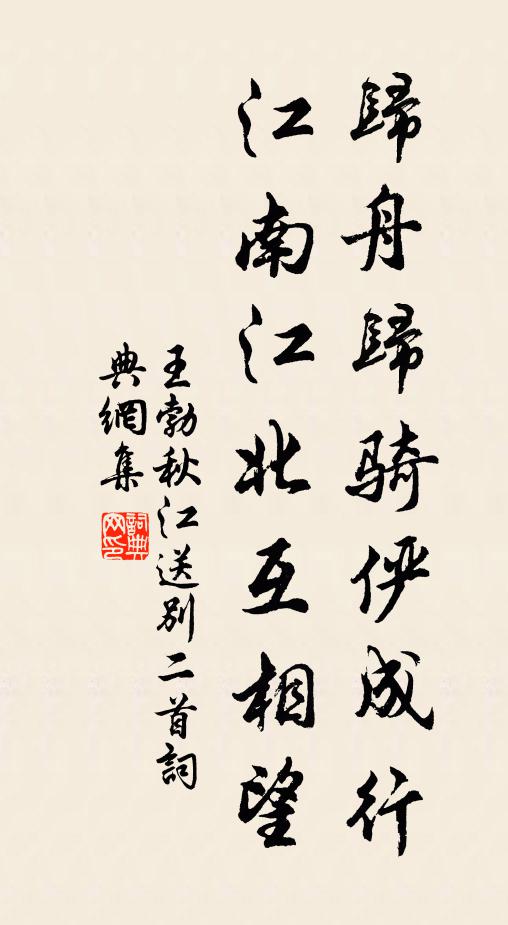 歸舟歸骑俨成行
江南江北互相望
王勃秋江送别二首詞
典網集
詞典
网印